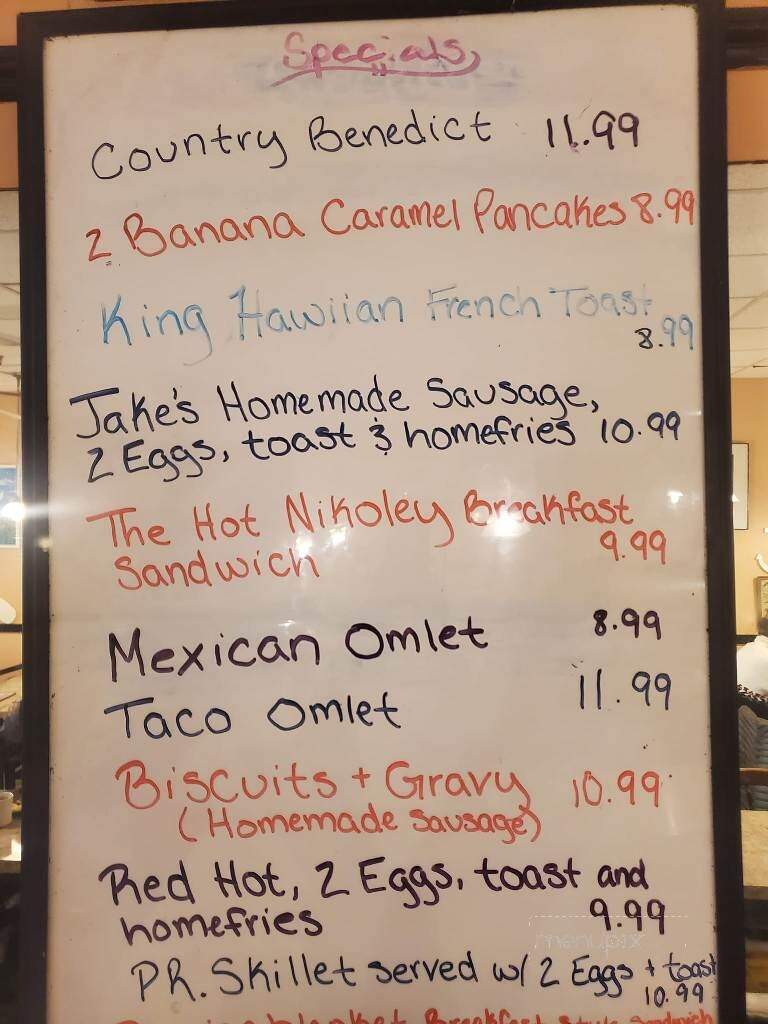 Specials
Country Benedict 11.99
2 Banana Caramel Pancakes 8.99
King Hawiian French Toast
8.99
Jake's Homemade Sausage,
2 Eggs, toast & homefries 10.99
The Hot Nikoley Breakfast
9.99
Sandwich
Mexican Omlet 8.99
Taco Omlet 11.99
Biscuits + Gravy 10.99
(Homemade Sausage)
Red Hot, 2 Eggs, toast and
homefries 9.99
menupix
PR. Skillet served w/ 2 Eggs + toast
10.99
blanket Breakfast Style Sandwich